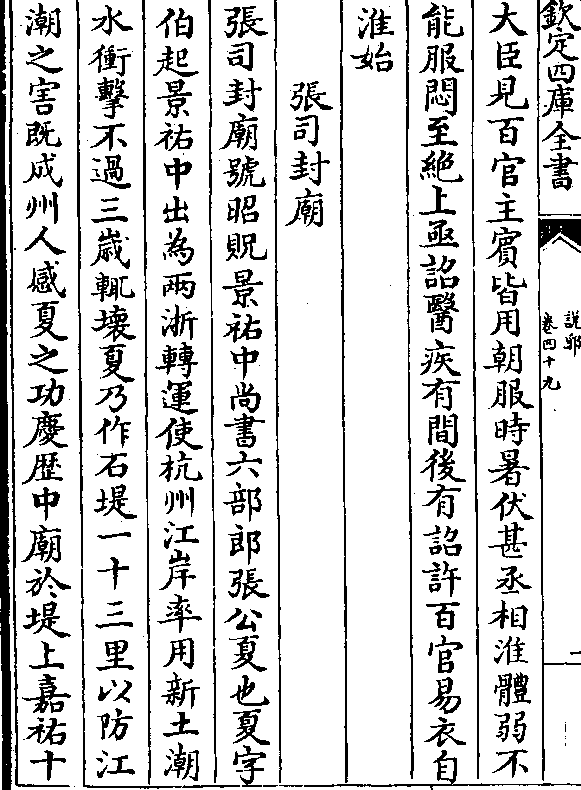 欽定四庫全書
說郛
卷四十九
大臣見百官主賓皆用朝服時暑伏甚丞相淮體弱不
能服悶至絶上亟詔醫疾有間後有詔許百官易衣自
淮始
張司封廟
張司封廟號昭貺景祐中尚書六部郎張公夏也夏字
伯起景祐中出為兩浙轉運使杭州江岸率用新土潮
水衝擊不過三歲輒壞夏乃作石堤一十三里以防江
潮之害既成州人感夏之功慶歷中廟於堤上嘉祐十